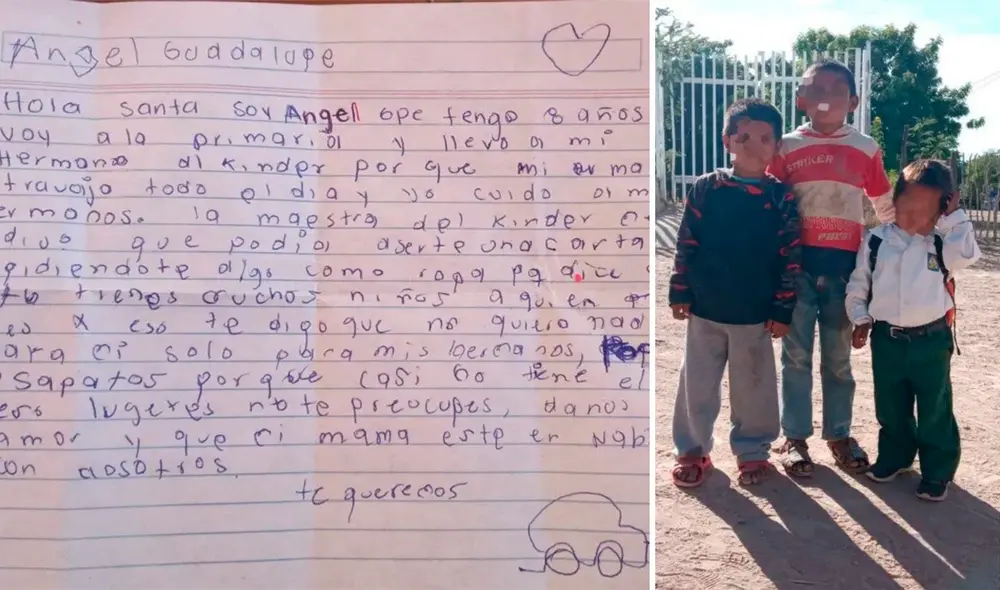 Angel Guadalupe
Hola santa soy Angel Gpe tengo 8 años
voy a la primaria y llevo a mi
Hermano al kinder por que mi ma
travajo todo el dia y yo cuido a m
ermanos. la maestra del kinder
dijo que podia aserte una carta
pidiendote algo como ropa pa dice
tienes muchos niños a quien
es x eso te digo que no quiero nad
ara mi solo para mis hermanos,
sapatos por que casi no tiene el
ero lugeres no te preocupes, danos
amor y que mi mama este en Nabi
on nosotros.
te queremos
STRIKER